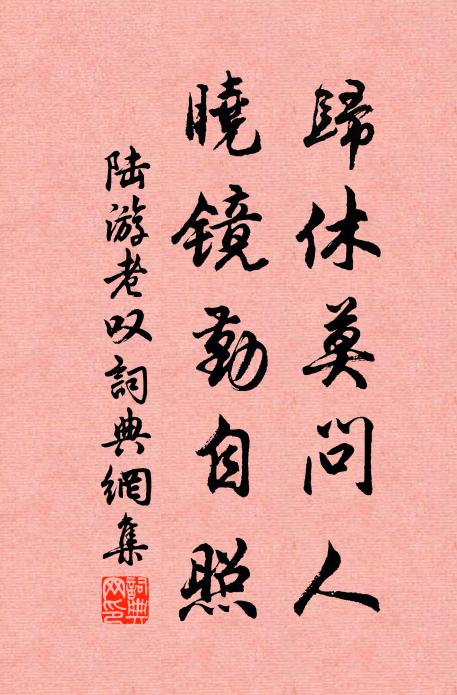 歸休莫問人
曉鏡勤自照
陆游老叹詞典網集
詞典網印